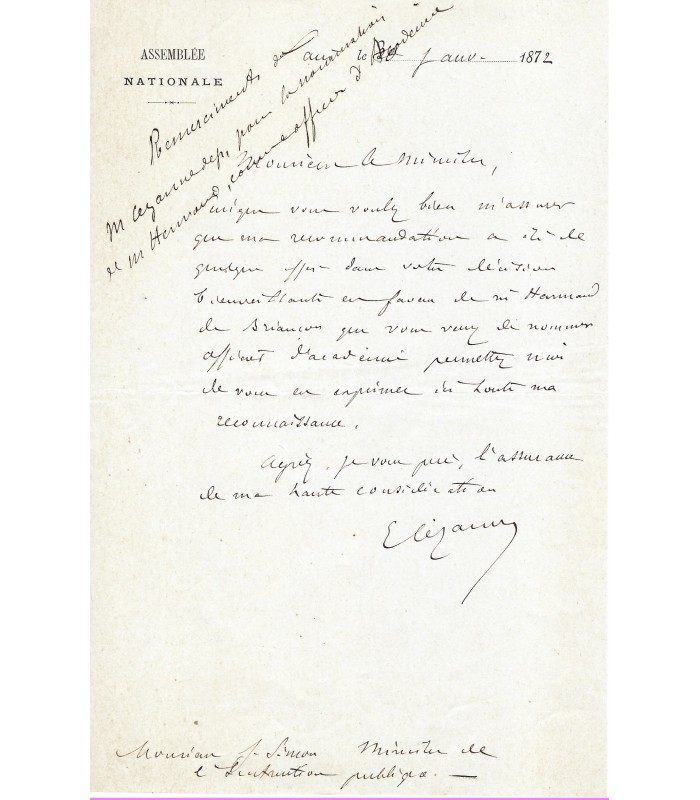 ASSEMBLÉE
NATIONALE
le 30 Janv. 1872
Remerciments de
M Cézanne dep. pour la nomination
de M Hermand, comme officier d'Académie
Monsieur le Ministre,
puisque vous voulez bien m'assurer
que ma recommandation a été de
quelque effet dans votre décision
bienveillante en faveur de M Hermand
de Briançon que vous venez de nommer
officier d'académie permettez moi
de vous en exprimer ici toute ma
reconnaissance.
Agréez, je vous prie, l'assurance
de ma haute considération
E Cézanne
Monsieur J. Simon Ministre de
l'Instruction publique. —